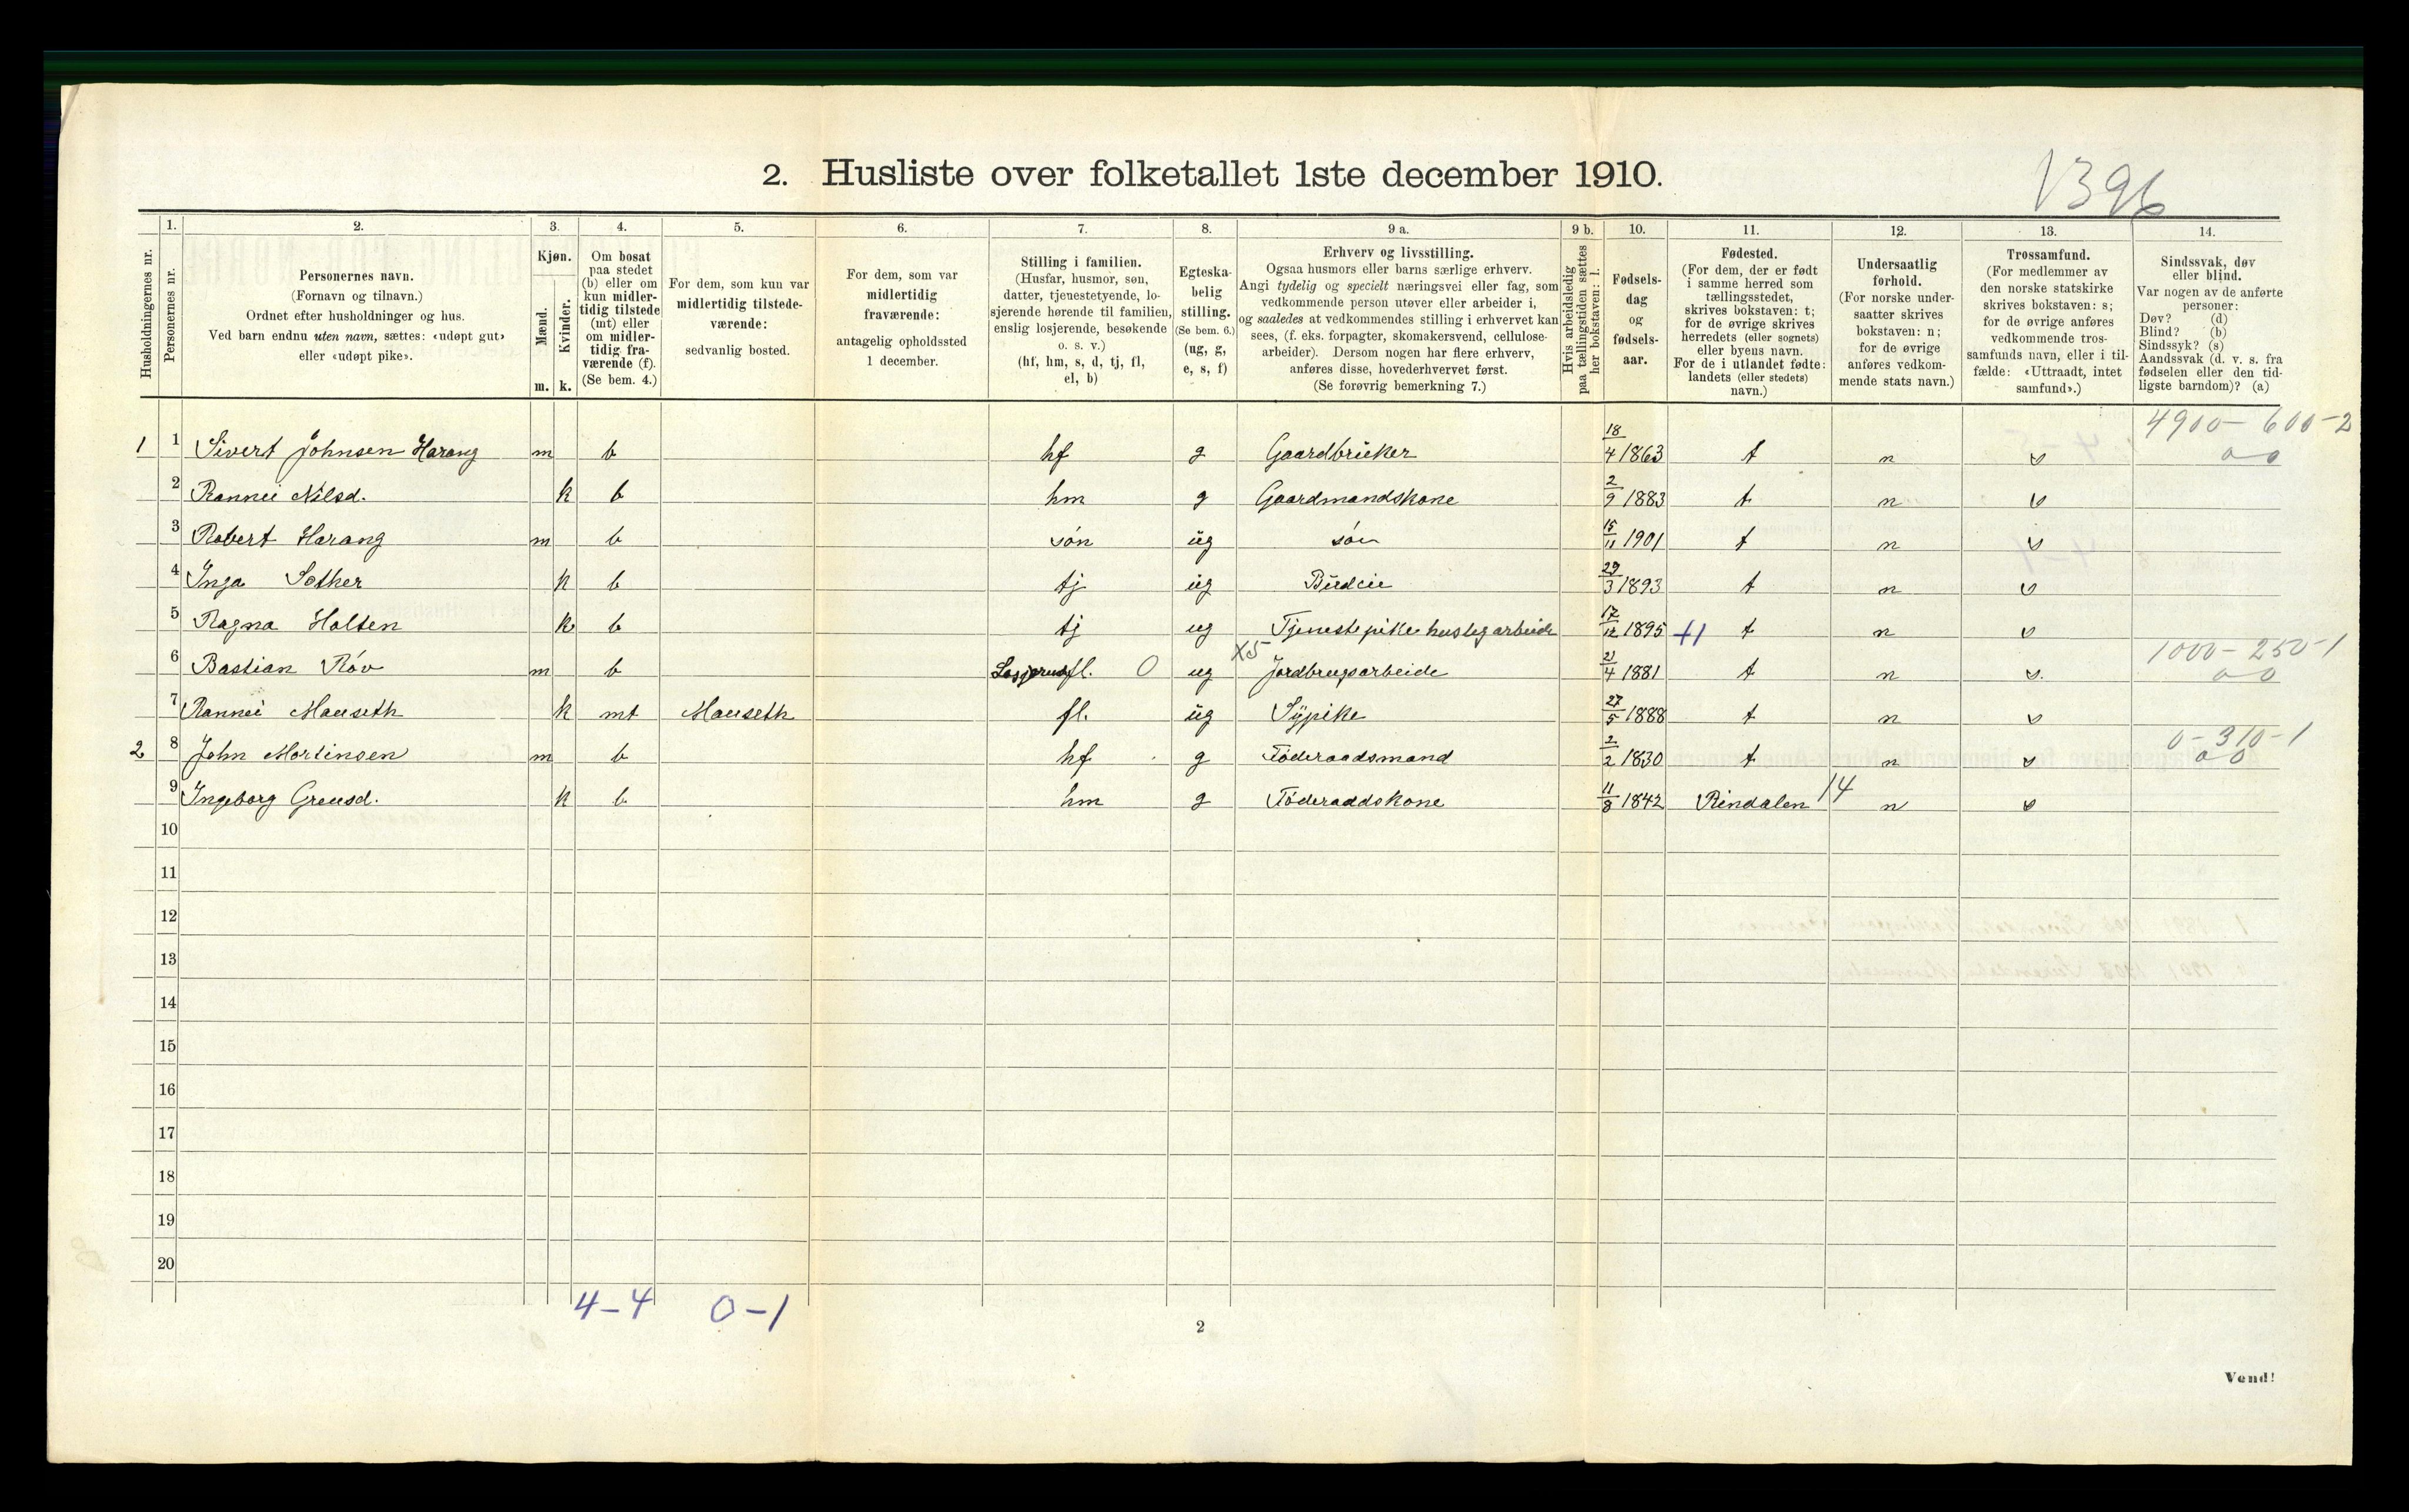 2. Husliste over folketallet 1ste december 1910.
1396
Husholdningernes nr.
1. Personernes nr.
2. Personernes navn.
(Fornavn og tilnavn.)
Ordnet efter husholdninger og hus.
Ved barn endnu uten navn, sættes: «udøpt gut»
eller «udøpt pike».
3. Kjøn.
Mænd. Kvinder.
m. k.
4. Om bosat
paa stedet
(b) eller om
kun midler-
tidig tilstede
(mt) eller
om midler-
tidig fra-
værende (f).
(Se bem. 4.)
5. For dem, som kun var
midlertidig tilstede-
værende:
sedvanlig bosted.
6. For dem, som var
midlertidig
fraværende:
antagelig opholdssted
1 december.
7. Stilling i familien.
(Husfar, husmor, søn,
datter, tjenestetyende, lo-
sjerende hørende til familien,
enslig losjerende, besøkende
o. s. v.)
(hf, hm, s, d, tj, fl,
el, b)
8. Egteska-
belig
stilling.
(Se bem. 6.)
(ug, g,
e, s, f)
9 a. Erhverv og livsstilling.
Ogsaa husmors eller barns særlige erhverv.
Angi tydelig og specielt næringsvei eller fag, som
vedkommende person utøver eller arbeider i,
og saaledes at vedkommendes stilling i erhvervet kan
sees, (f. eks. forpagter, skomakersvend, cellulose-
arbeider). Dersom nogen har flere erhverv,
anføres disse, hovederhvervet først.
(Se forøvrig bemerkning 7.)
9 b. Hvis arbeidsledig
paa tællingstiden sættes
her bokstaven: l.
10. Fødsels-
dag
og
fødsels-
aar.
11. Fødested.
(For dem, der er født
i samme herred som
tællingsstedet,
skrives bokstaven: t;
for de øvrige skrives
herredets (eller sognets)
eller byens navn.
For de i utlandet fødte:
landets (eller stedets)
navn.)
12. Undersaatlig
forhold.
(For norske under-
saatter skrives
bokstaven: n;
for de øvrige
anføres vedkom-
mende stats navn.)
13. Trossamfund.
(For medlemmer av
den norske statskirke
skrives bokstaven: s;
for de øvrige anføres
vedkommende tros-
samfunds navn, eller i til-
fælde: «Uttraadt, intet
samfund».)
14. Sindssvak, døv
eller blind.
Var nogen av de anførte
personer:
Døv? (d)
Blind? (b)
Sindssyk? (s)
Aandssvak (d. v. s. fra
fødselen eller den tid-
ligste barndom)? (a)
4900-600-2
1 1 Sivert Johnsen Harang m b hf g Gaardbrüker 18/4 1863 t n s 0 0
2 Rannei Nilsd. k b hm g Gaardmandskone 2/9 1883 t n s
3 Robert Harang m b søn üg søn 15/11 1901 t n s
4 Inga Sæther k b tj üg Büdeie 29/3 1893 t n s
5 Ragna Holten k b tj ug Tjenestepike huslig arbeide 17/12 1895 +1 t n s
X5 1000-250-1
6 Bastian Röv m b Losjerende fl. 0 ug Jordbrugsarbeide 21/4 1881 t n s. 0 0
7 Rannei Mauseth k mt Mauseth fl. üg Sÿpike 27/5 1888 t n s
0-310-1
2 8 John Mortinsen m b hf g Föderaadsmand 2/2 1830 t n s 0 0
9 Ingeborg k b hm g Föderaadskone 11/8 1842 Rindalen 14 n s
10
11
12
13
14
15
16
17
18
19
20
4-4 0-1
2
Vend!